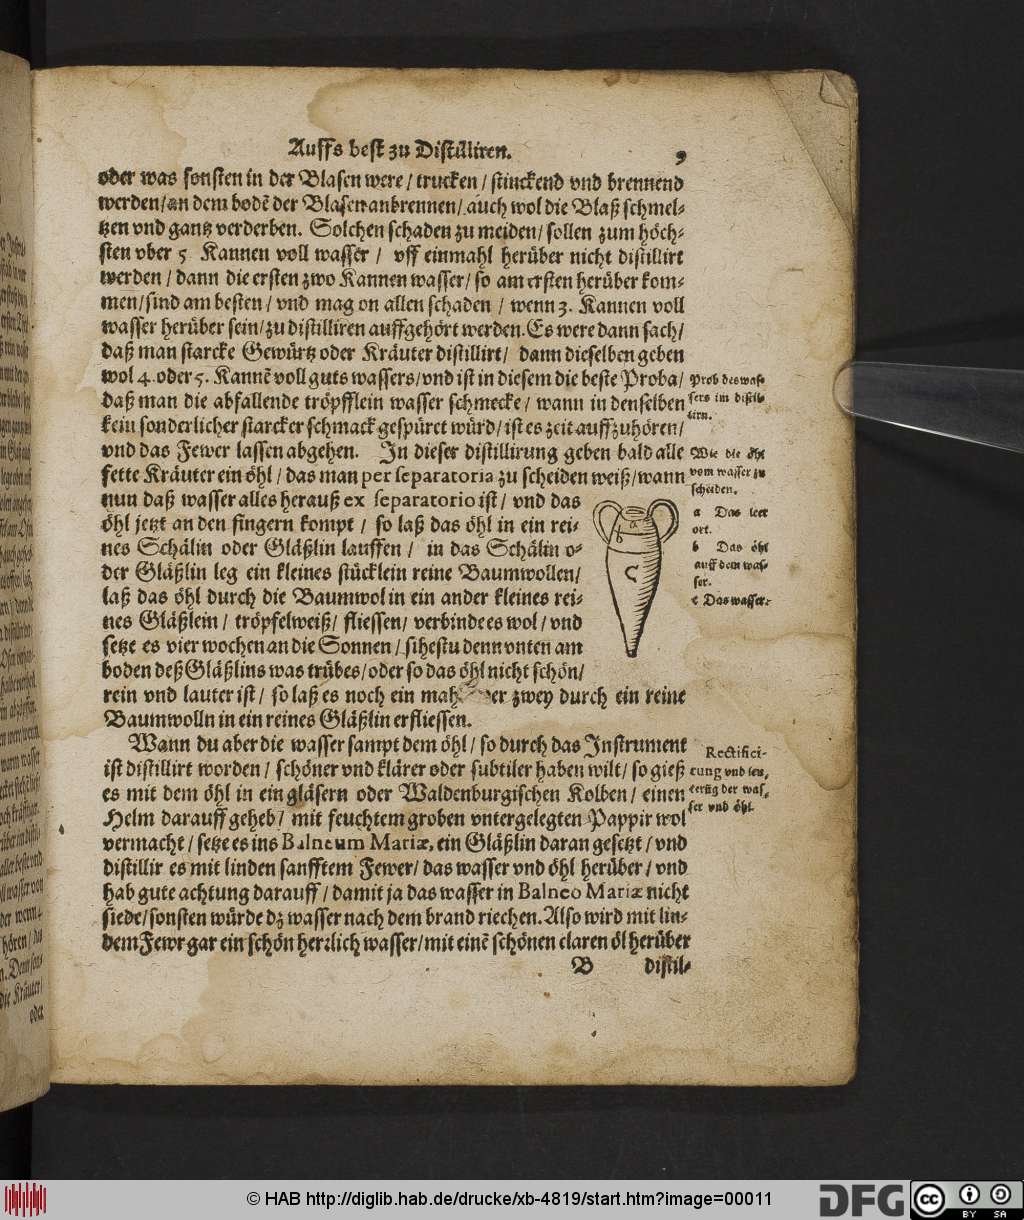 Auffs best zu Distilliren. 9
oder was sonsten in der Blasen were / trucken / stinckend vnd brennend
werden / an dem bodẽ der Blasen anbrennen / auch wol die Blaß schmel-
tzen vnd gantz verderben. Solchen schaden zu meiden / sollen zum höch-
sten vber 5 Kannen voll wasser / vff einmahl herüber nicht distillirt
werden / dann die ersten zwo Kannen wasser / so am ersten herüber kom-
men / sind am besten / vnd mag on allen schaden / wenn 3. Kannen voll
wasser herüber sein / zu distilliren auffgehört werden. Es were dann sach /
daß man starcke Gewürtz oder Kräuter distillirt / dann dieselben geben
wol 4. oder 5. Kannẽ voll guts wassers / vnd ist in diesem die beste Proba /
daß man die abfallende tröpfflein wasser schmecke / wann in denselben
kein sonderlicher starcker schmack gespüret würd / ist es zeit auffzuhören /
vnd das Fewer lassen abgehen. In dieser distillirung geben bald alle
fette Kräuter ein öhl / das man per separatoria zu scheiden weiß / wann
nun daß wasser alles herauß ex separatorio ist / vnd das
öhl jetzt an den fingern kompt / so laß das öhl in ein rei-
nes Schälin oder Gläßlin lauffen / in das Schälin o-
der Gläßlin leg ein kleines stücklein reine Baumwollen /
laß das öhl durch die Baumwol in ein ander kleines rei-
nes Gläßlein / tröpfelweiß / fliessen / verbinde es wol / vnd
setze es vier wochen an die Sonnen / sihestu denn vnten am
boden deß Gläßlins was trübes / oder so das öhl nicht schön /
rein vnd lauter ist / so laß es noch ein mahl zwey durch ein reine
Baumwolln in ein reines Gläßlin erfliessen.
Wann du aber die wasser sampt dem öhl / so durch das Instrument
ist distillirt worden / schöner vnd klärer oder subtiler haben wilt / so gieß
es mit dem öhl in ein gläsern oder Waldenburgischen Kolben / einen
Helm darauff geheb / mit feuchtem groben vntergelegten Pappir wol
vermacht / setze es ins Balneum Mariæ, ein Gläßlin daran gesetzt / vnd
distillir es mit linden sanfftem Fewer / das wasser vnd öhl herüber / vnd
hab gute achtung darauff / damit ja das wasser in Balneo Mariæ nicht
siede / sonsten würde dz wasser nach dem brand riechen. Also wird mit lin-
dem Fewr gar ein schön herrlich wasser / mit einẽ schönen claren öl herüber
B distil-
Prob des was-
sers im distil-
lirn.
Wie die öhl
vom wasser zu
scheiden.
a Das leer
ort.
b Das öhl
auff dem was-
ser.
c Das wasser.
a
b
c
Rectifici-
rung vnd leu-
terũg der was-
ser vnd öhl.
oder
© HAB http://diglib.hab.de/drucke/xb-4819/start.htm?image=00011
DFG
cc
BY SA